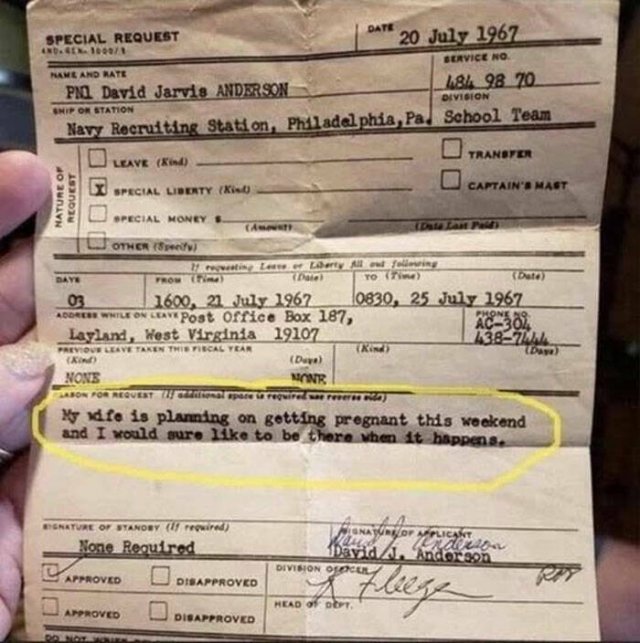 SPECIAL REQUEST
DATE 20 July 1967
NAME AND RATE
PN1 David Jarvis ANDERSON
SERVICE NO.
484 98 70
SHIP OR STATION
Navy Recruiting Station, Philadelphia, Pa.
DIVISION
School Team
NATURE OF REQUEST
LEAVE (Kind)
TRANSFER
X SPECIAL LIBERTY (Kind)
CAPTAIN'S MAST
SPECIAL MONEY $
(Amount)
(Date Last Paid)
OTHER (Specify)
If requesting Leave or Liberty fill out following
DAYS
03
FROM (Time) (Date)
1600, 21 July 1967
TO (Time) (Date)
0830, 25 July 1967
ADDRESS WHILE ON LEAVE Post Office Box 187,
Layland, West Virginia 19107
PHONE NO.
AC-304
438-7444
PREVIOUS LEAVE TAKEN THIS FISCAL YEAR
(Kind) (Days) (Kind) (Days)
NONE NONE
REASON FOR REQUEST (If additional space is required use reverse side)
My wife is planning on getting pregnant this weekend
and I would sure like to be there when it happens.
SIGNATURE OF STANDBY (If required)
None Required
SIGNATURE OF APPLICANT
David J. Anderson
David J. Anderson
APPROVED DISAPPROVED
DIVISION OFFICER
APPROVED DISAPPROVED
HEAD OF DEPT.
DO NOT WRITE